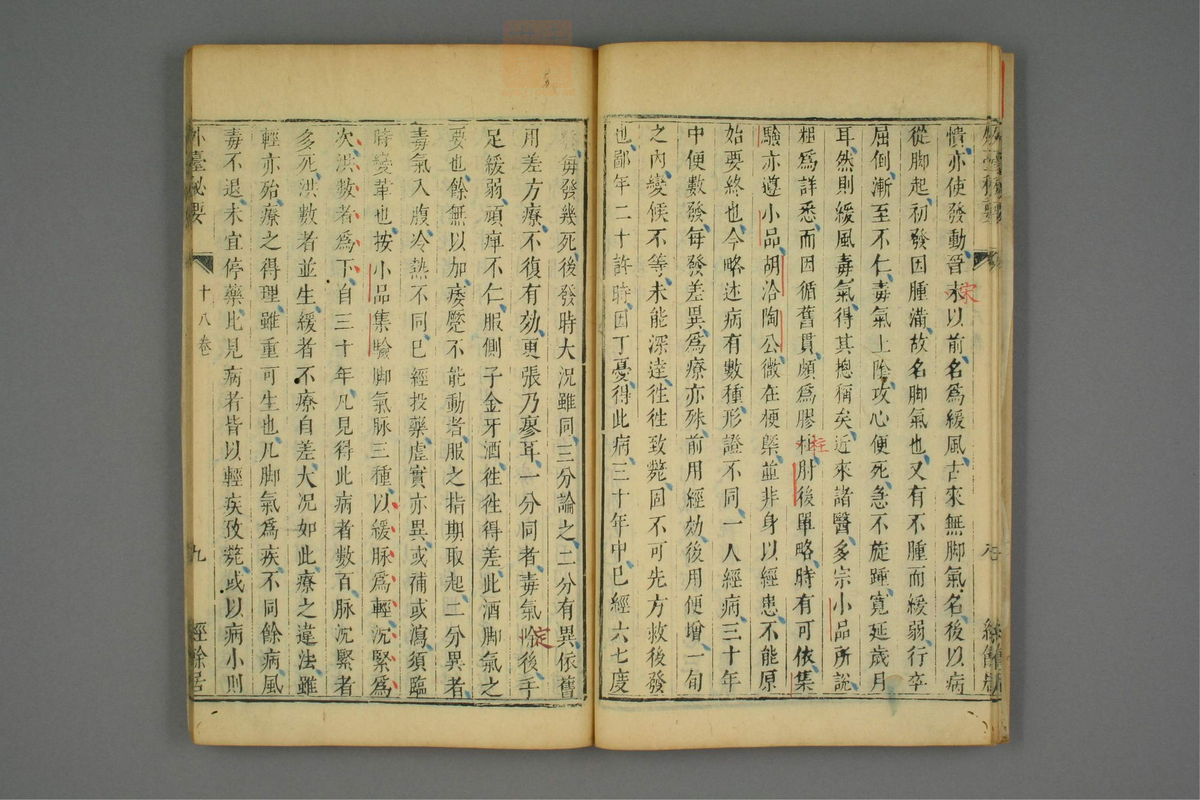 憒亦使發動晉宋以前名爲緩風古來無脚氣名後以病
從脚起初發因腫滿故名脚氣也又有不腫而緩弱行卒
屈倒漸至不仁毒氣上陰攻心便死急不旋踵寬延歲月
耳然則緩風毒氣得其揔稱矣近來諸醫多宗小品所說
粗爲詳悉而因循舊貫頗爲膠柱肘後單略時有可依集
驗亦遵小品胡洽陶公微在梗槩並非身以經患不能原
始要終也今略述病有數種形證不同一人經病三十年
中便數發每發差異爲療亦殊前用經効後用便增一旬
之內變候不等未能深達徃徃致斃固不可先方救後發
也鄙年二十許時因丁憂得此病三十年中已經六七度
每發幾死後發時大況雖同三分論之二分有異依舊
用差方療不復有効更張乃瘳耳一分同者毒氣定後手
足緩弱頑痺不仁服側子金牙酒徃徃得差此酒脚氣之
要也餘無以加痿躄不能動者服之指期取起二分異者
毒氣入腹冷熱不同已經投藥虛實亦異或補或瀉須臨
時變革也按小品集驗脚氣脉三種以緩脉爲輕沉緊爲
次洪數者爲下自三十年凡見得此病者數百脉沉緊者
多死洪數者並生緩者不療自差大况如此療之違法雖
輕亦殆療之得理雖重可生也凡脚氣爲疾不同餘病風
毒不退未宜停藥比見病者皆以輕疾致斃或以病小則
外臺秘要
十八卷
九
經餘居